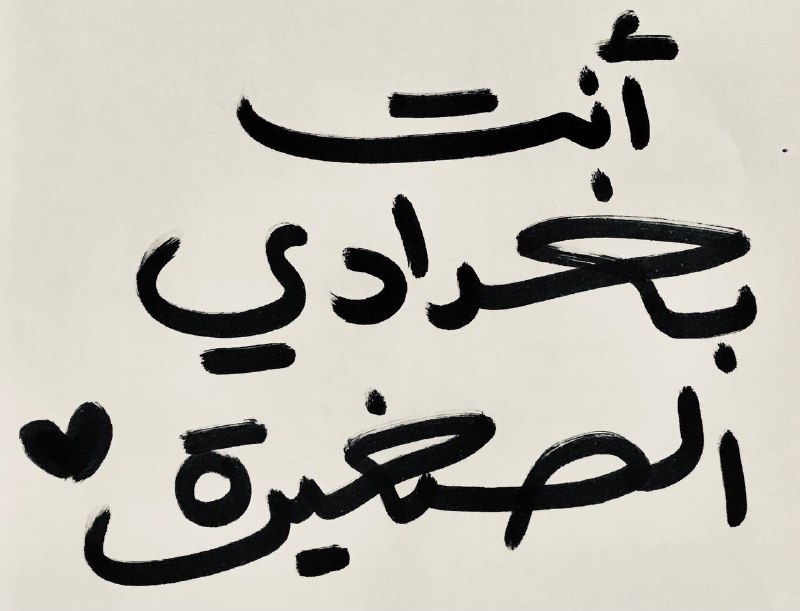 أنت
بغدادي
الصغيرة